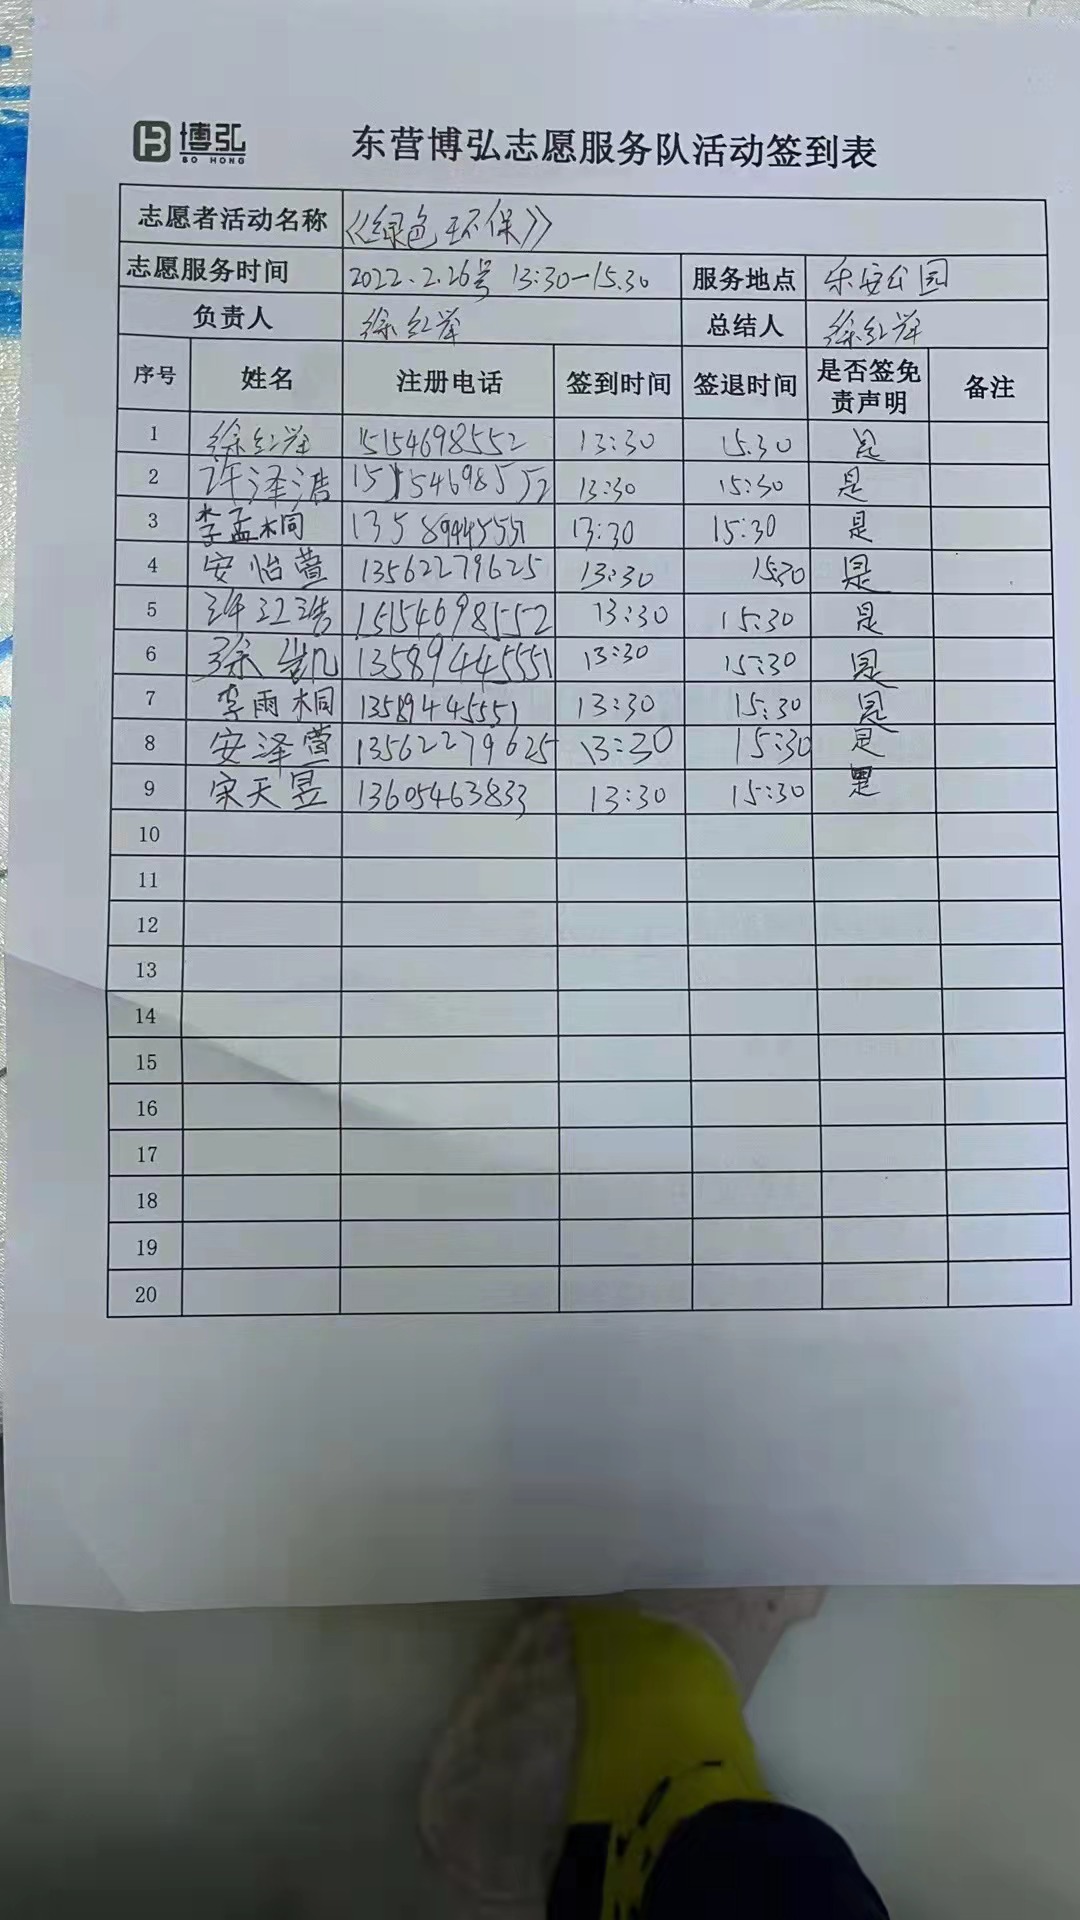 博弘 东营博弘志愿服务队活动签到表
BO HONG
志愿者活动名称 《绿色环保》
志愿服务时间 2022.2.26号 13:30—15.30 服务地点 乐安公园
负责人 徐红 总结人 徐红
序号 姓名 注册电话 签到时间 签退时间 是否签免责声明 备注
1 徐红 15154698552 13:30 15.30 是
2 许泽浩 15154698552 13:30 15:30 是
3 李孟桐 13589445551 13:30 15:30 是
4 安怡萱 13562279625 13:30 15:30 是
5 许江浩 15154698552 13:30 15:30 是
6 徐凯 13589445551 13:30 15:30 是
7 李雨桐 13589445551 13:30 15:30 是
8 安泽萱 13562279625 13:30 15:30 是
9 宋天昱 13605463833 13:30 15:30 是
10
11
12
13
14
15
16
17
18
19
20